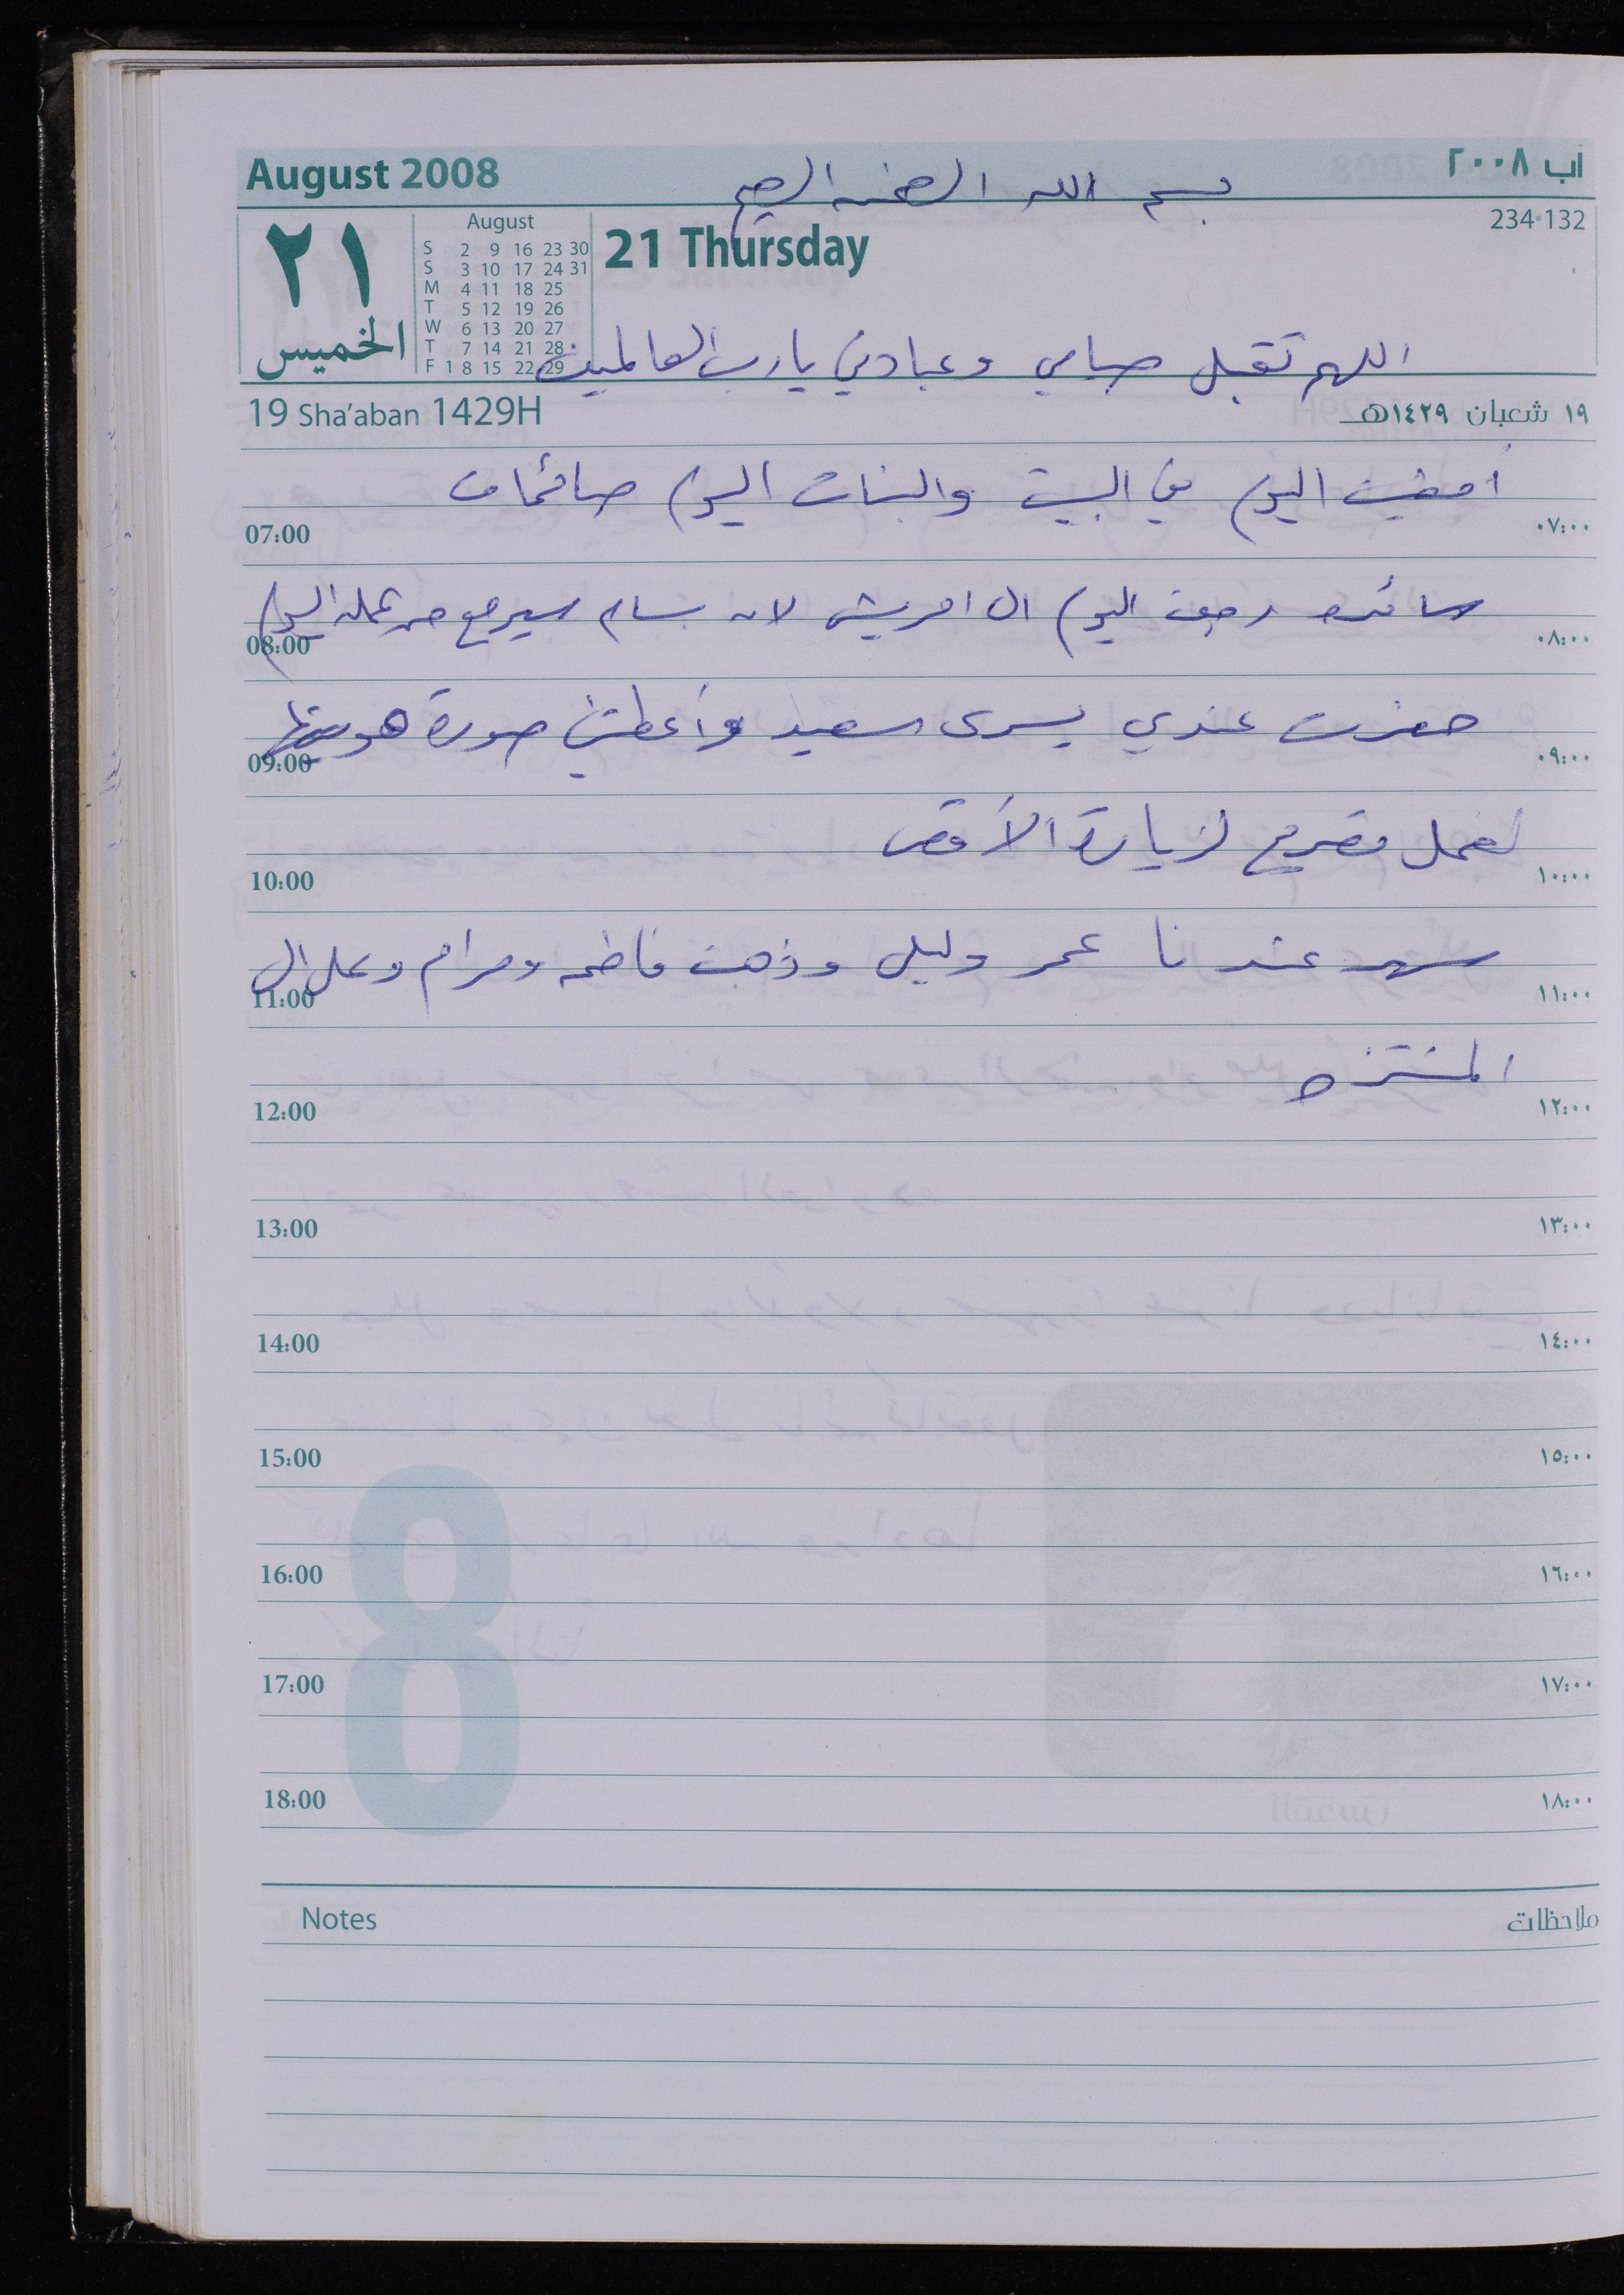 August 2008
آب ٢٠٠٨
بسم الله الرحمن الرحيم
234-132
٢١
الخميس
August
S 2 9 16 23 30
S 3 10 17 24 31
M 4 11 18 25
T 5 12 19 26
W 6 13 20 27
T 7 14 21 28
F 1 8 15 22 29
21 Thursday
اللهم تقبل صيامي وعبادتي يا رب العالمين
19 Sha'aban 1429H
١٩ شعبان ١٤٢٩هـ
أمضيت اليوم في البيت والبنات اليوم صائمات
07:00 ٠٧:٠٠
سائده رجعت اليوم الى امريش لان بسام سيرجع من عمله اليوم
08:00 ٠٨:٠٠
حضرت عندي يسرى اسعيد وأعطتني صورة هويتها
09:00 ٠٩:٠٠
لعمل تصريح لزيارة الأقصى
10:00 ١٠:٠٠
سهر عندنا عمر وليلى وذهبت فاطمه ومرام وعلي الى
11:00 ١١:٠٠
المنتزه
12:00 ١٢:٠٠
13:00 ١٣:٠٠
14:00 ١٤:٠٠
15:00 ١٥:٠٠
16:00 ١٦:٠٠
17:00 ١٧:٠٠
18:00 ١٨:٠٠
8
Notes
ملاحظات